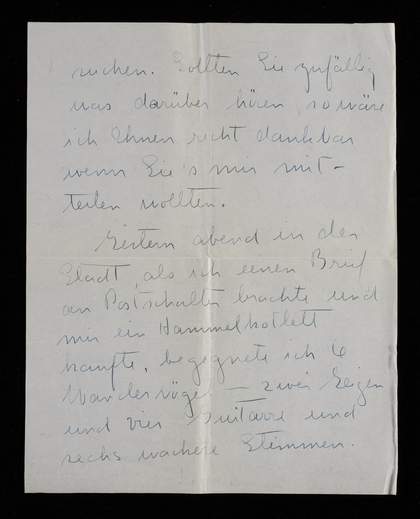 suchen. Sollten Sie zufällig
was darüber hören, so wäre
ich Ihnen recht dankbar
wenn Sie's mir mit-
teilen wollten.
Gestern abend in der
Stadt, als ich einen Brief
an Postschalter brachte und
mir ein Hammelkotlett
kaufte, begegnete ich 6
Wandervögel — zwei Geigen
und vier Guitarre und
sechs wackere Stimmen.